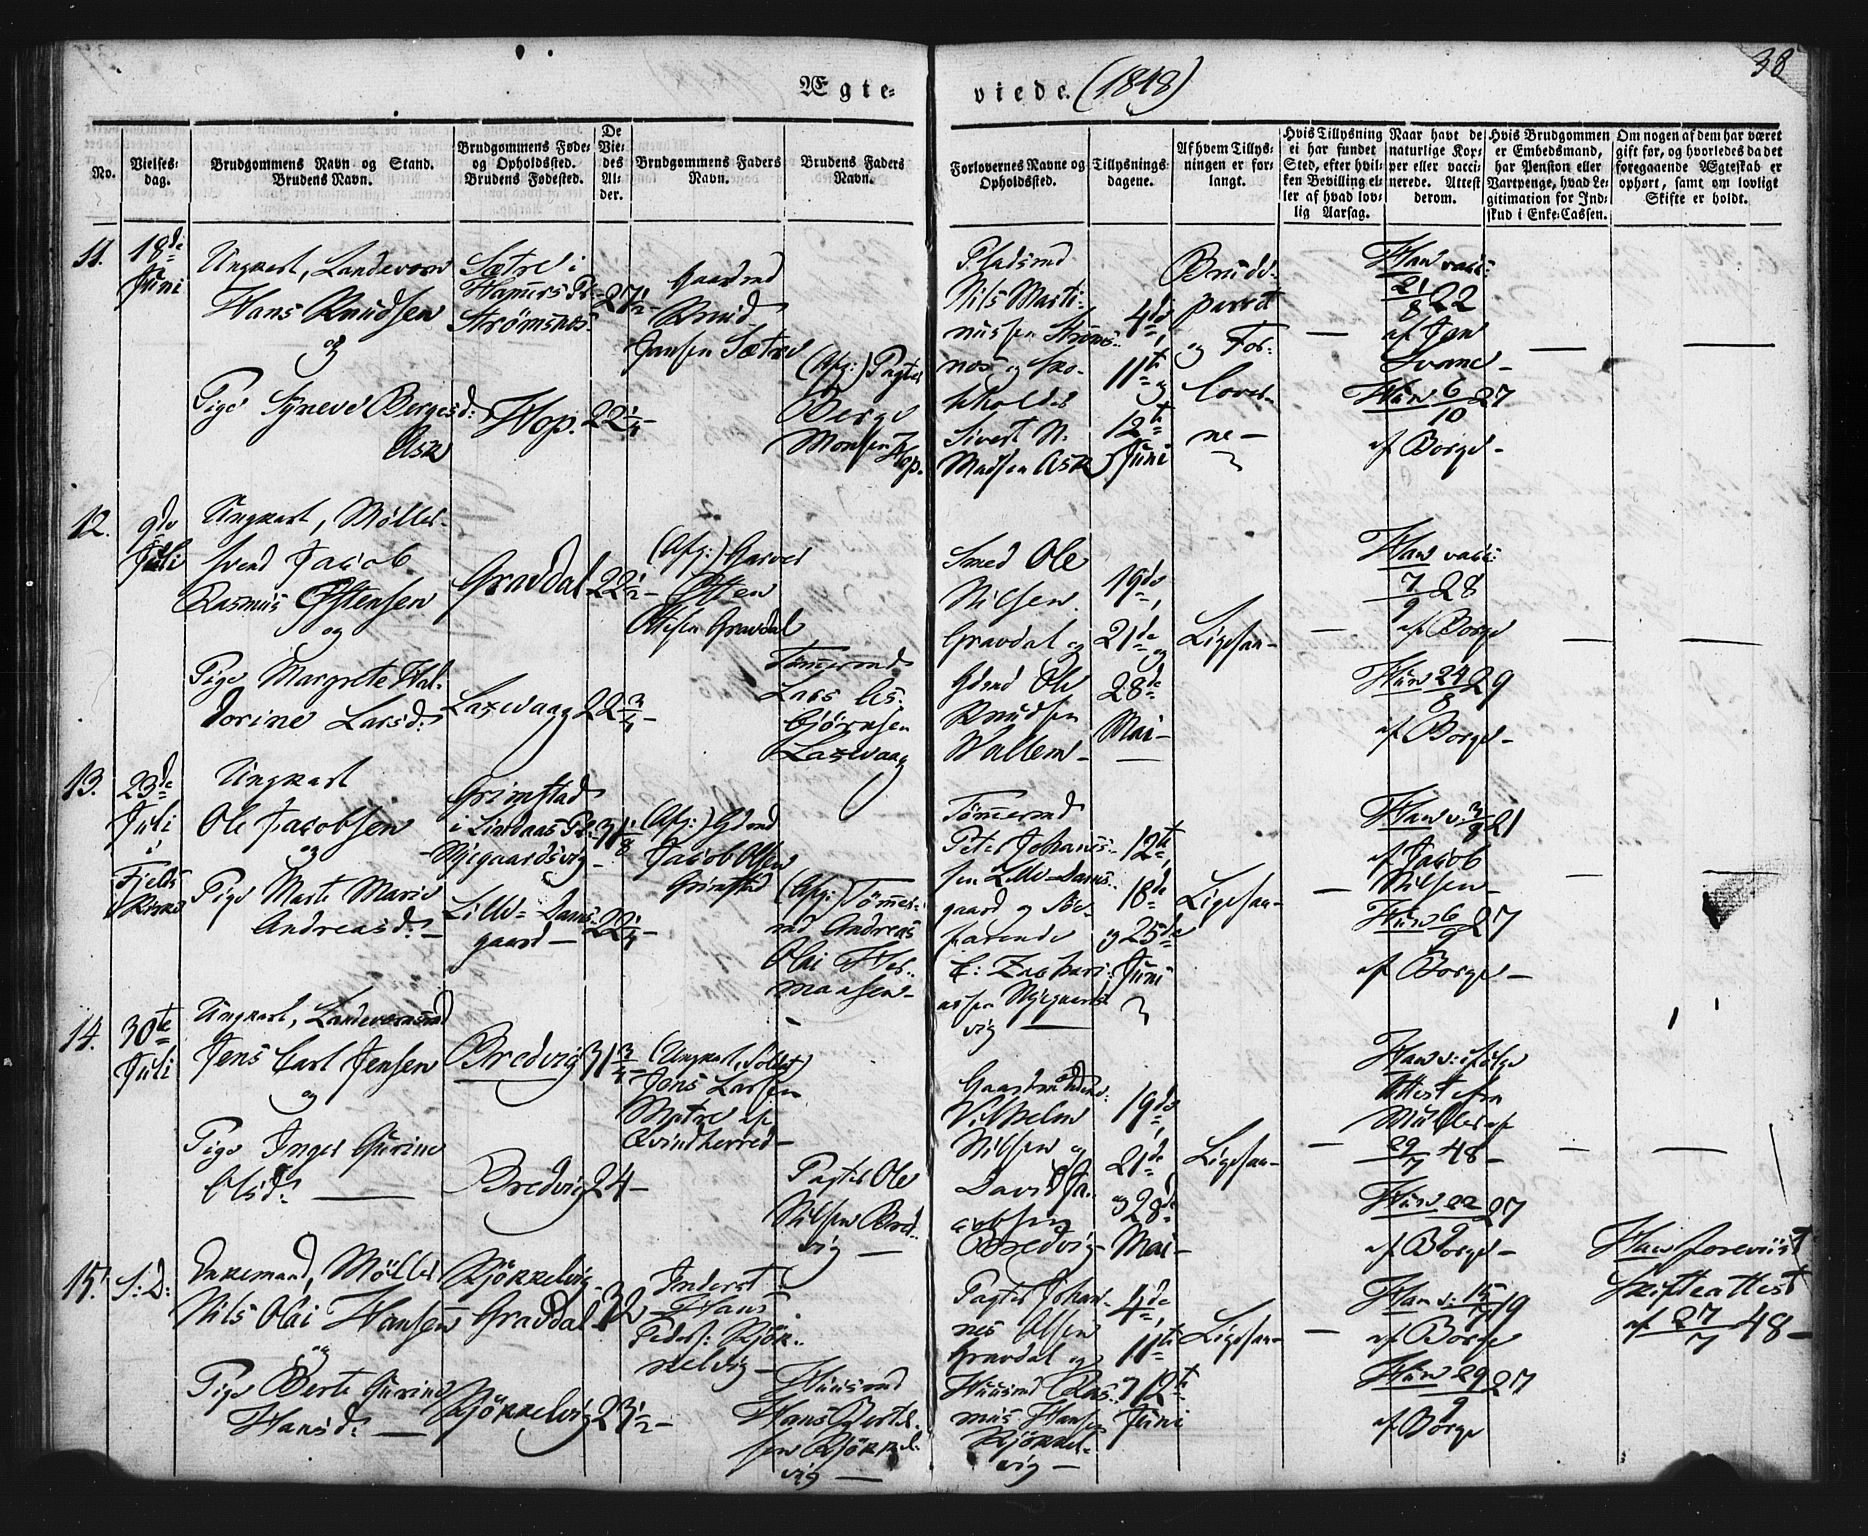 38
Ægte-
viede. (1848)
No.
Vielses-
dag.
Brudgommens Navn og Stand.
Brudens Navn.
Brudgommens Føde-
og Opholdssted.
Brudens Fødested.
De
Vie-
des
Al-
der.
Brudgommens Faders
Navn.
Brudens Faders
Navn.
Forlovernes Navne og
Opholdssted.
Tillysnings-
dagene.
Af hvem Tillys-
ningen er for-
langt.
Hvis Tillysning
ei har fundet
Sted, efter hvil-
ken Bevilling el-
ler af hvad lov-
lig Aarsag.
Naar havt de
naturlige Kop-
per eller vacci-
nerede. Attest
derom.
Hvis Brudgommen
er Embedsmand,
har Pension eller
Vartpenge, hvad Le-
gitimation for Ind-
skud i Enke-Cassen.
Om nogen af dem har været
gift før, og hvorledes da det
foregaaende Ægteskab er
ophørt, samt om lovligt
Skifte er holdt.
11.
18de
Juni
Ungkarl, Landevern
Hans Knudsen
og
Pige Synneve Bergesd:
Ask
Sætre i
Hammers Pr:
Strømsnæs
Hop.
27½
22¼
Gaardmd
Knud
Jansen Sætre
(Afg:) Pagter
Berge
Monsen Hop.
Pladsmd
Nils Marti-
nussen Strøms-
næs og Sko-
leholder
Sivert N.
Madsen Ask
4de,
11te
og
12te
Juni
Brude-
parret
og For-
lover-
ne –
Han vacc:
21/8 22
af Jan
Svane –
Hun 6/10 27
af Borge –
12.
9de
Juli
Ungkarl, Møller-
svend Jacob
Rasmus Østensen
og
Pige Margrete Hal-
dorine Larsd:
Gravdal
Laxevaag
22½ –
22¾ –
(Afg:) Garver
Østen
Gravdal
Tømmermd
Lars As-
bjørnsen
Laxevaag
Smed Ole
Nilsen
Gravdal og
Gdmd Ole
Knudsen
Wallem –
19de,
21de
og
28de
Mai –
Ligesaa –
Han vacc:
7/9 28
af Borge
Hun 24/8 29
af Borge –
13.
23de
Juli
i
Fjelds
Kirke
Ungkarl
Ole Jacobsen
og
Pige Marte Marie
Andreasd: –
Grimstad
i Lindaas Pr:
Nygaardsvig –
Lille-Dams-
gaard –
31⅛
22¼ –
(Afg:) Gdmd
Jacob Olsen
Grimstad
(Afg:) Tømmer-
md Andreas
Olai Her-
mansen –
Tømmermd
Peter Johannes-
sen Lille-Dams-
gaard og Søe-
farende
E: Zachari-
assen Nygaards-
vig –
12te,
18de
og 25de
Juni
Ligesaa –
Han v: 3/8 21
af Jacob
Nilsen –
Hun 6/9 27
af Borge –
14.
30te
Juli
Ungkarl, Landevernsmd
Jens Carl Jensen
og
Pige Inger Gurine
Olsd: –
Bredvig
Bredvig
31¾ –
24 –
(Ungkarl, Soldat)
Jens Larsen
Matre af
Qvindherred –
Pagter Ole
Nilsen Bred-
vig –
Vilhelm
Nilsen og
David Ja-
cobsen
Bredvig –
19de,
21de
og 28de
Mai –
Ligesaa –
Han v: ifølge
Attest fra
Müller af
29/7 48 –
Hun 22/9 27
af Borge –
15.
S: D:
Enkemand, Møller
Nils Olai Hansen
og
Pige Berte Gurine
Hansd: –
Kjøkkelvig
Gravdal
Kjøkkelvig
32
23½ –
Inderst
Hans
Peders: Kjøk-
kelvig –
Huusmd
Hans Bert-
sen Kjøkkel-
vig –
Pagter Johan-
nes Olsen
Gravdal og
Huusmd Ras-
mus Hansen
Kjøkkel-
vig –
4de,
11te
og 12te
Juni
Ligesaa –
Han v: 15/7 19
af Borge
Hun 29/9 27
af Borge
Han foreviist
Skifteattest
af 27/7 48 –